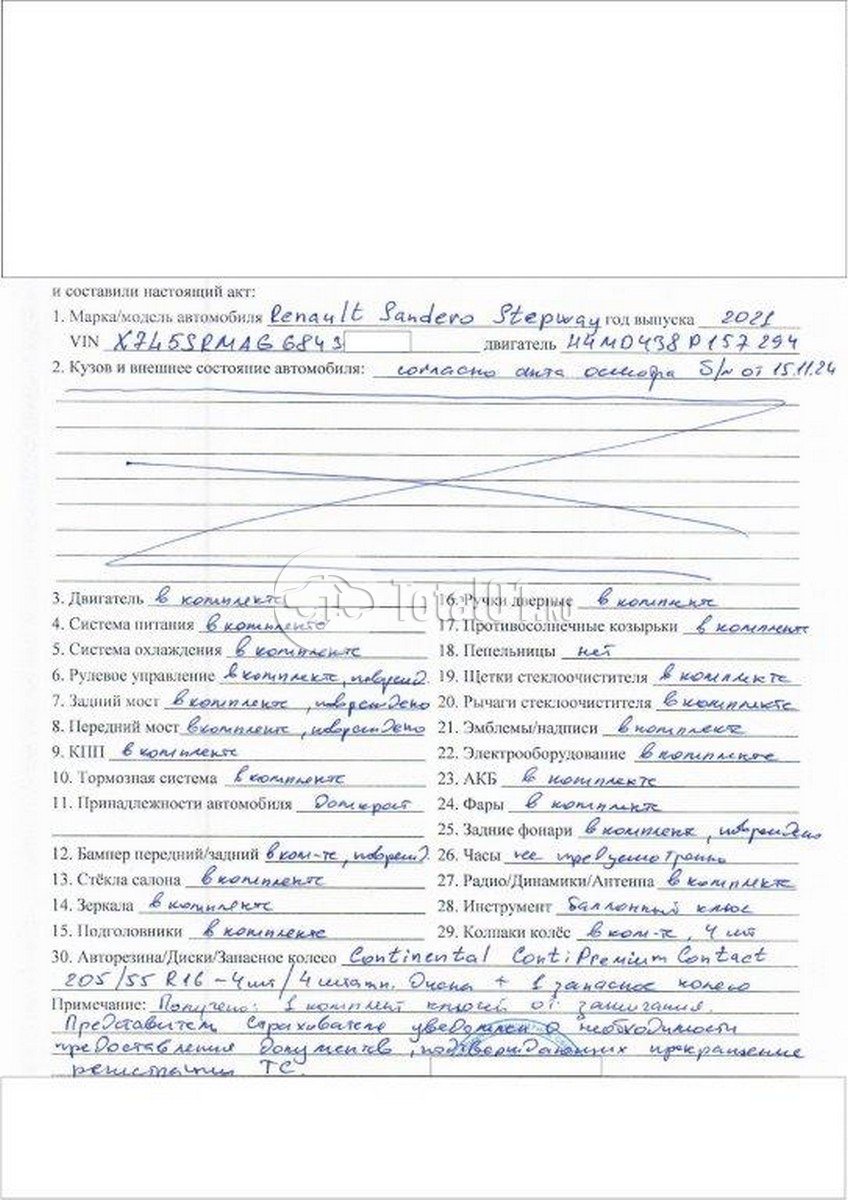 и составили настоящий акт:
1. Марка/модель автомобиля Renault Sandero Stepway год выпуска 2021
VIN X7L5SRMAG6843 двигатель H4MD438P157294
2. Кузов и внешнее состояние автомобиля: согласно акта осмотра б/н от 15.11.24
3. Двигатель в комплекте
4. Система питания в комплекте
5. Система охлаждения в комплекте
6. Рулевое управление в комплекте, поврежд.
7. Задний мост в комплекте, повреждено
8. Передний мост в комплекте, повреждено
9. КПП в комплекте
10. Тормозная система в комплекте
11. Принадлежности автомобиля домкрат
12. Бампер передний/задний в ком-те, поврежд.
13. Стёкла салона в комплекте
14. Зеркала в комплекте
15. Подголовники в комплекте
16. Ручки дверные в комплекте
17. Противосолнечные козырьки в комплекте
18. Пепельницы нет
19. Щетки стеклоочистителя в комплекте
20. Рычаги стеклоочистителя в комплекте
21. Эмблемы/надписи в комплекте
22. Электрооборудование в комплекте
23. АКБ в комплекте
24. Фары в комплекте
25. Задние фонари в комплект, повреждено
26. Часы не предусмотренно
27. Радио/Динамики/Антенна в комплекте
28. Инструмент баллонный ключ
29. Колпаки колёс в ком-те, 4 шт
30. Авторезина/Диски/Запасное колесо Continental ContiPremiumContact
205/55 R16 - 4 шт / 4 штамп. диска + 1 запасное колесо
Примечание: Получено: 1 комплект ключей от зажигания.
Представитель Страхователя уведомлен о необходимости
предоставления документов, подтверждающих прекращение
регистрации ТС.
Total01.ru